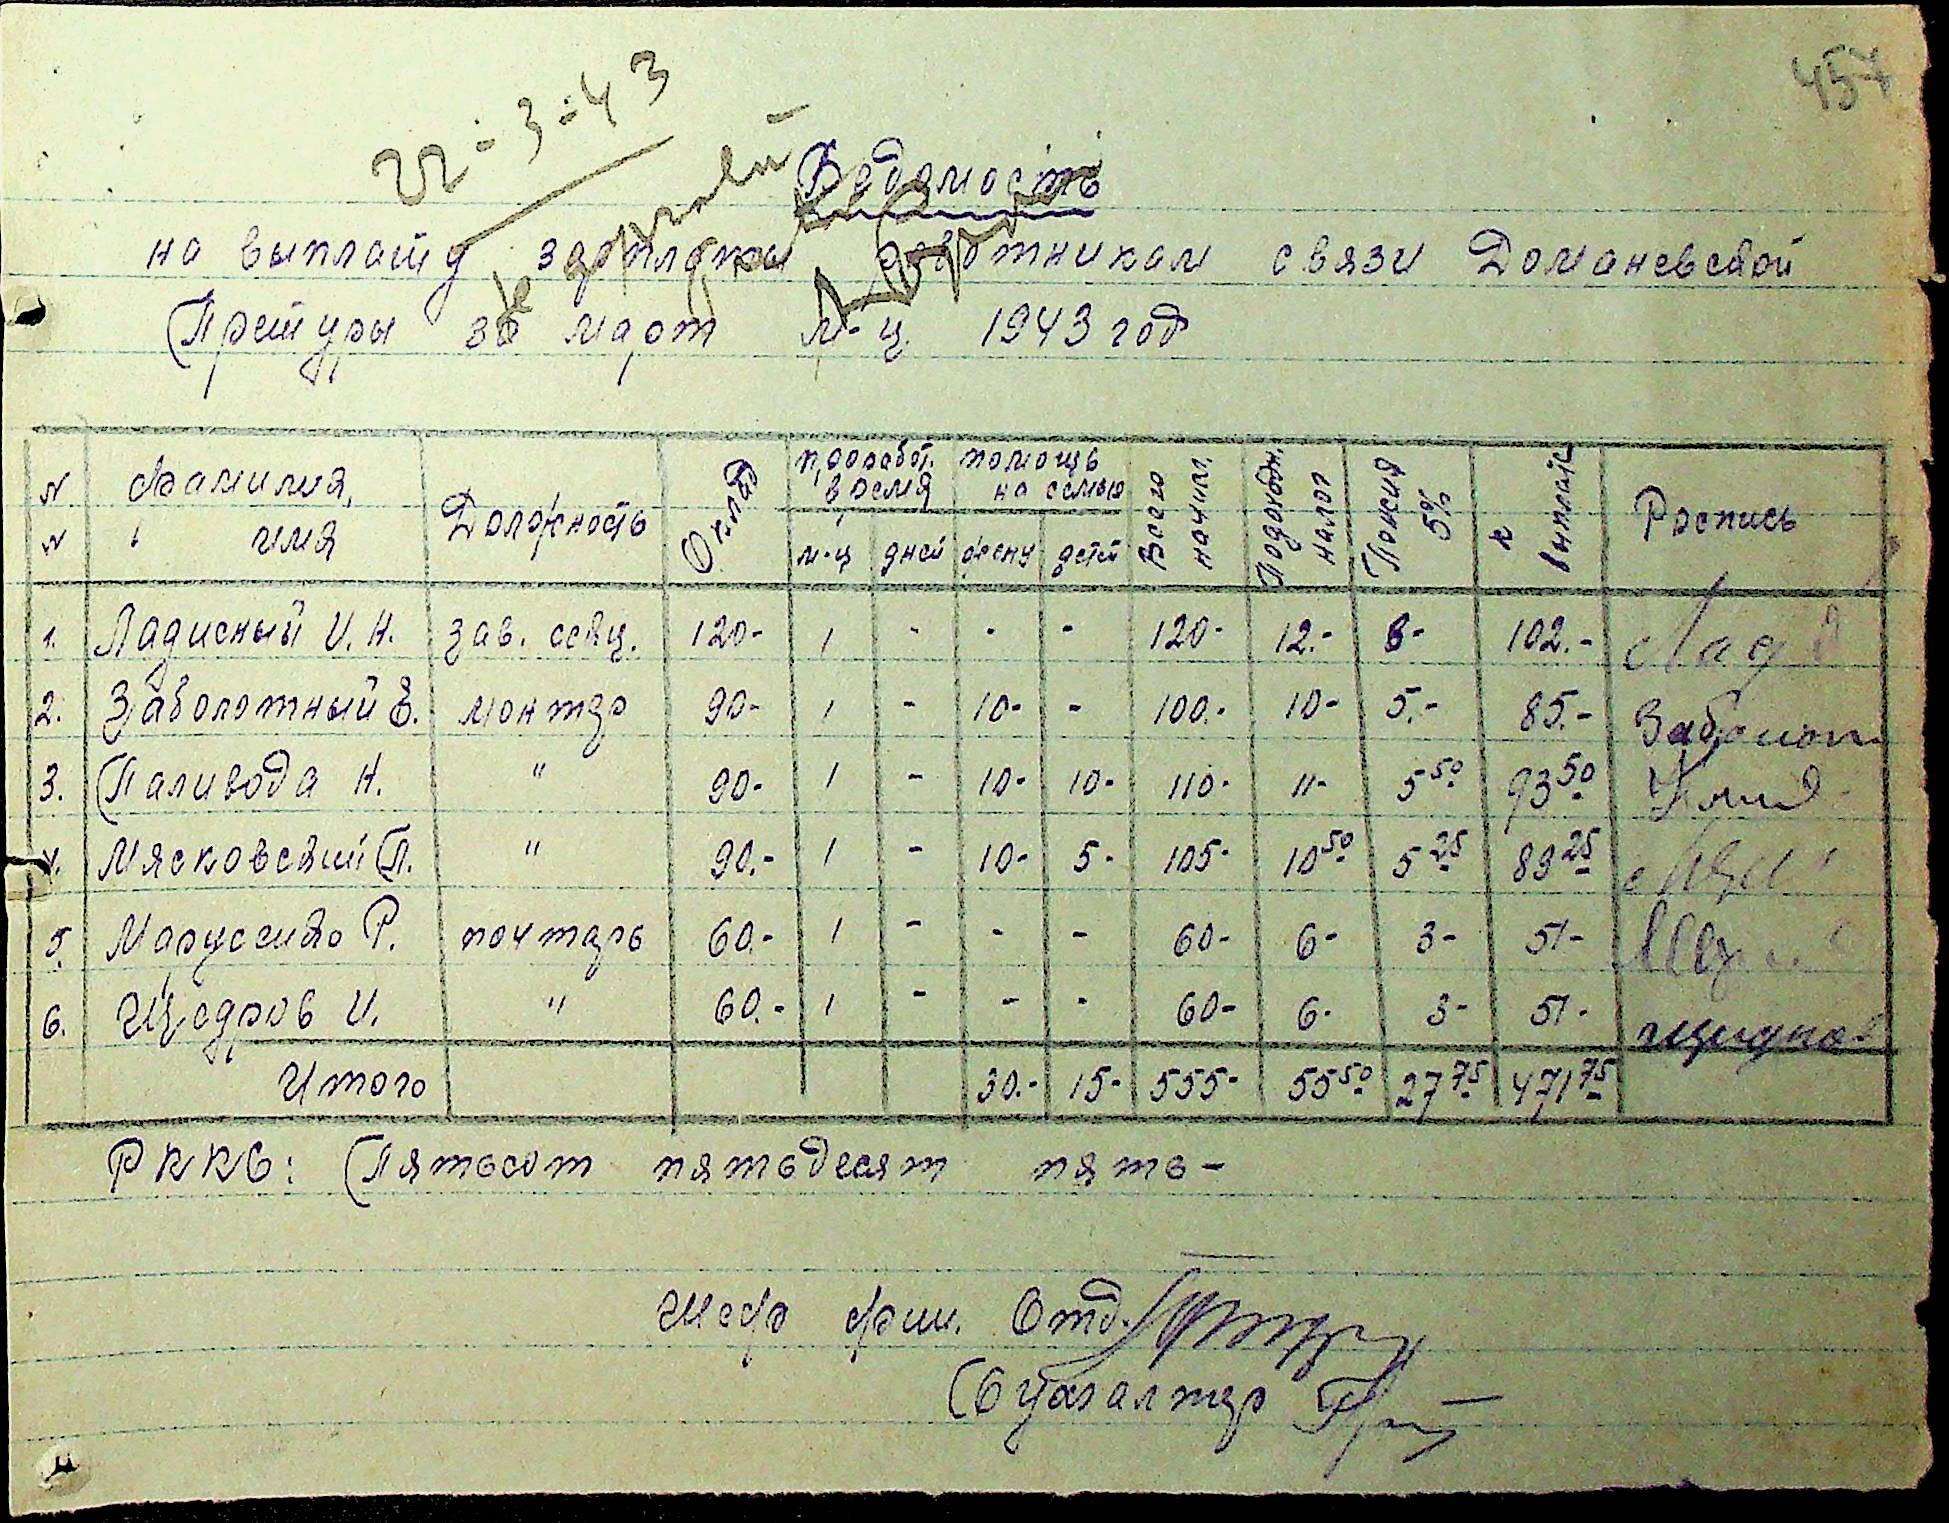 457
22-3-43
Ведомость
на выплату зарплаты работникам связи Доманевской
Претуры за март м-ц. 1943 год
N N Фамилия, имя Должность Оклад проработ. время м-ц дней помощь на семью жену детей Всего начисл. Подоходн. налог Пенсия 5% к выплате Роспись
1. Ладисный И. Н. зав. секц. 120- 1 - - - 120- 12.- 6- 102.- Лад
2. Заболотный Е. монтер 90- 1 - 10- - 100.- 10- 5.- 85.- Заболот
3. Паливода Н. " 90- 1 - 10- 10- 110- 11- 5 50 93 50
4. Мясковский П. " 90.- 1 - 10- 5- 105- 10 50 5 25 89 25
5. Марусенко Р. почтарь 60.- 1 - - - 60- 6- 3- 51-
6. Щедров И. " 60.- 1 - - - 60- 6- 3- 51-
Итого 30.- 15- 555- 55 50 27 75 471 75
РККС: Пятьсот пятьдесят пять-
Шеф фин. Отд.
Бухгалтер